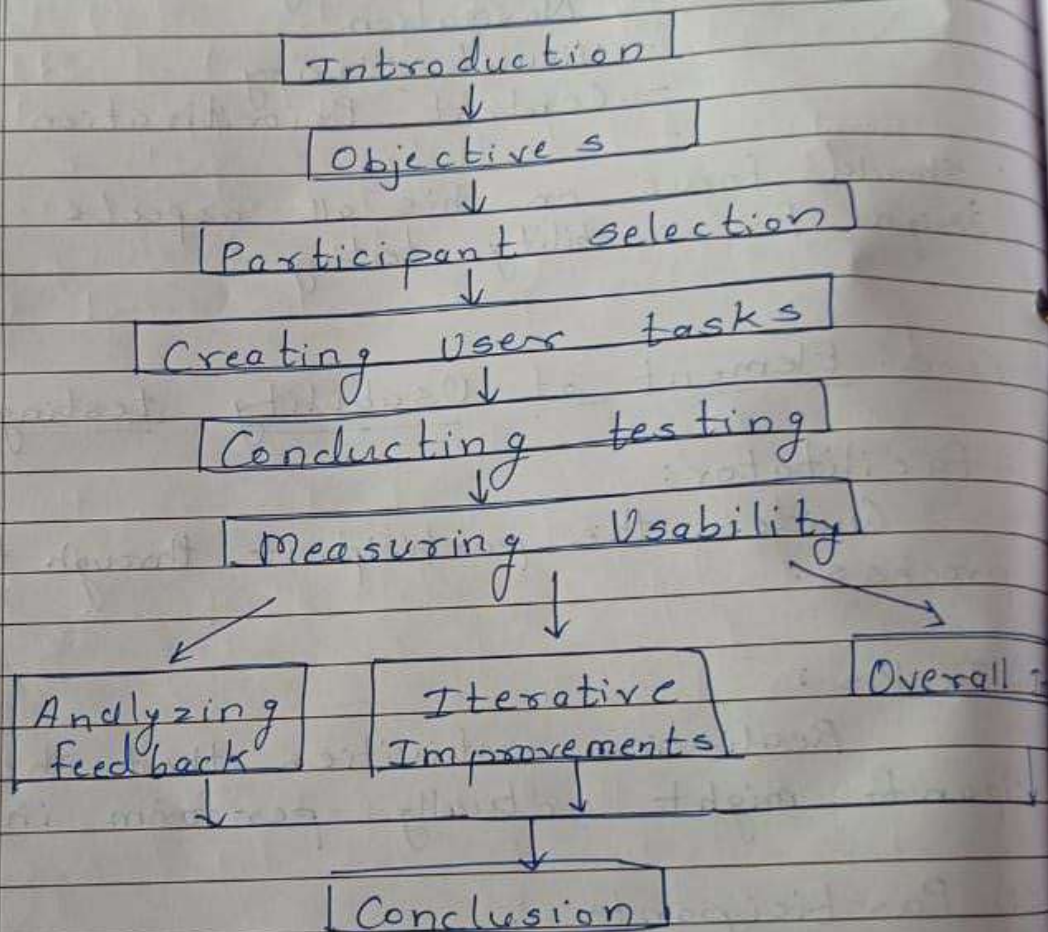 Introduction
Objectives
Participant selection
Creating User tasks
Conducting testing
Measuring Usability
Analyzing
feedback
Iterative
Improvements
Overall
Conclusion